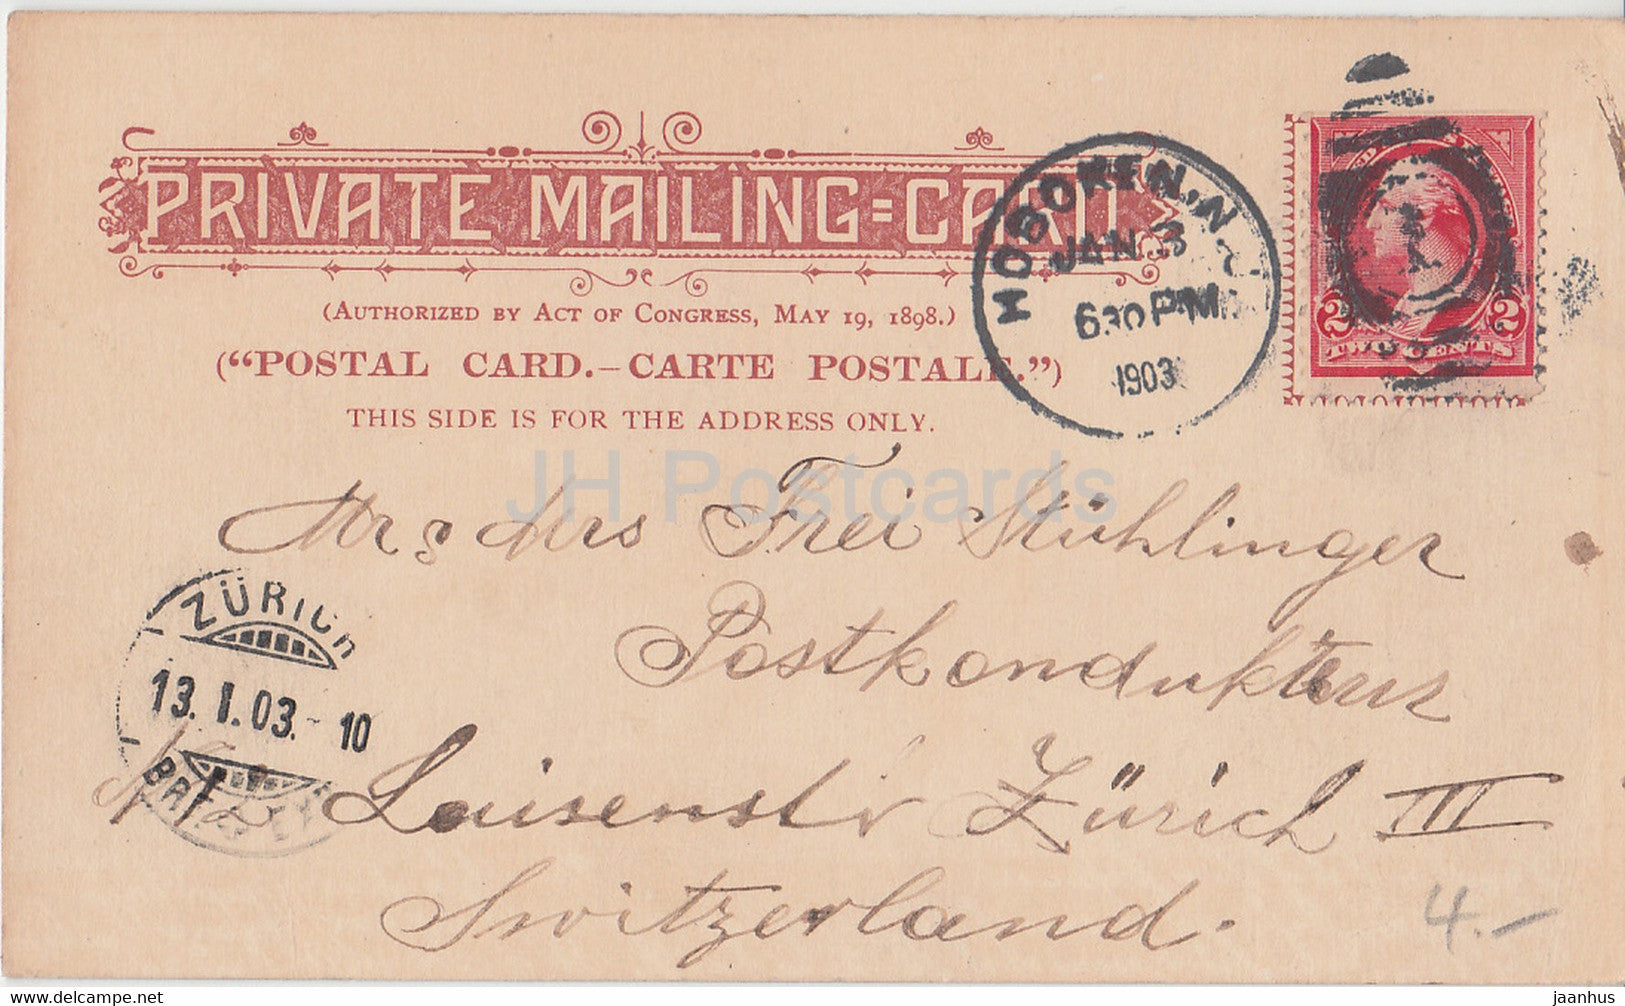 PRIVATE MAILING=CARD
(AUTHORIZED BY ACT OF CONGRESS, MAY 19, 1898.)
("POSTAL CARD.—CARTE POSTALE.")
THIS SIDE IS FOR THE ADDRESS ONLY.
HOBOKEN, N.J.
JAN 3
630 PM
1903
1
2 2
TWO CENTS
JH Postcards
Mr & Mrs Frei Stühlinger
Postkondukteur
Luisenstr Zürich III
Switzerland.
ZÜRICH
13. I. 03.-10
4.-
jaanhus